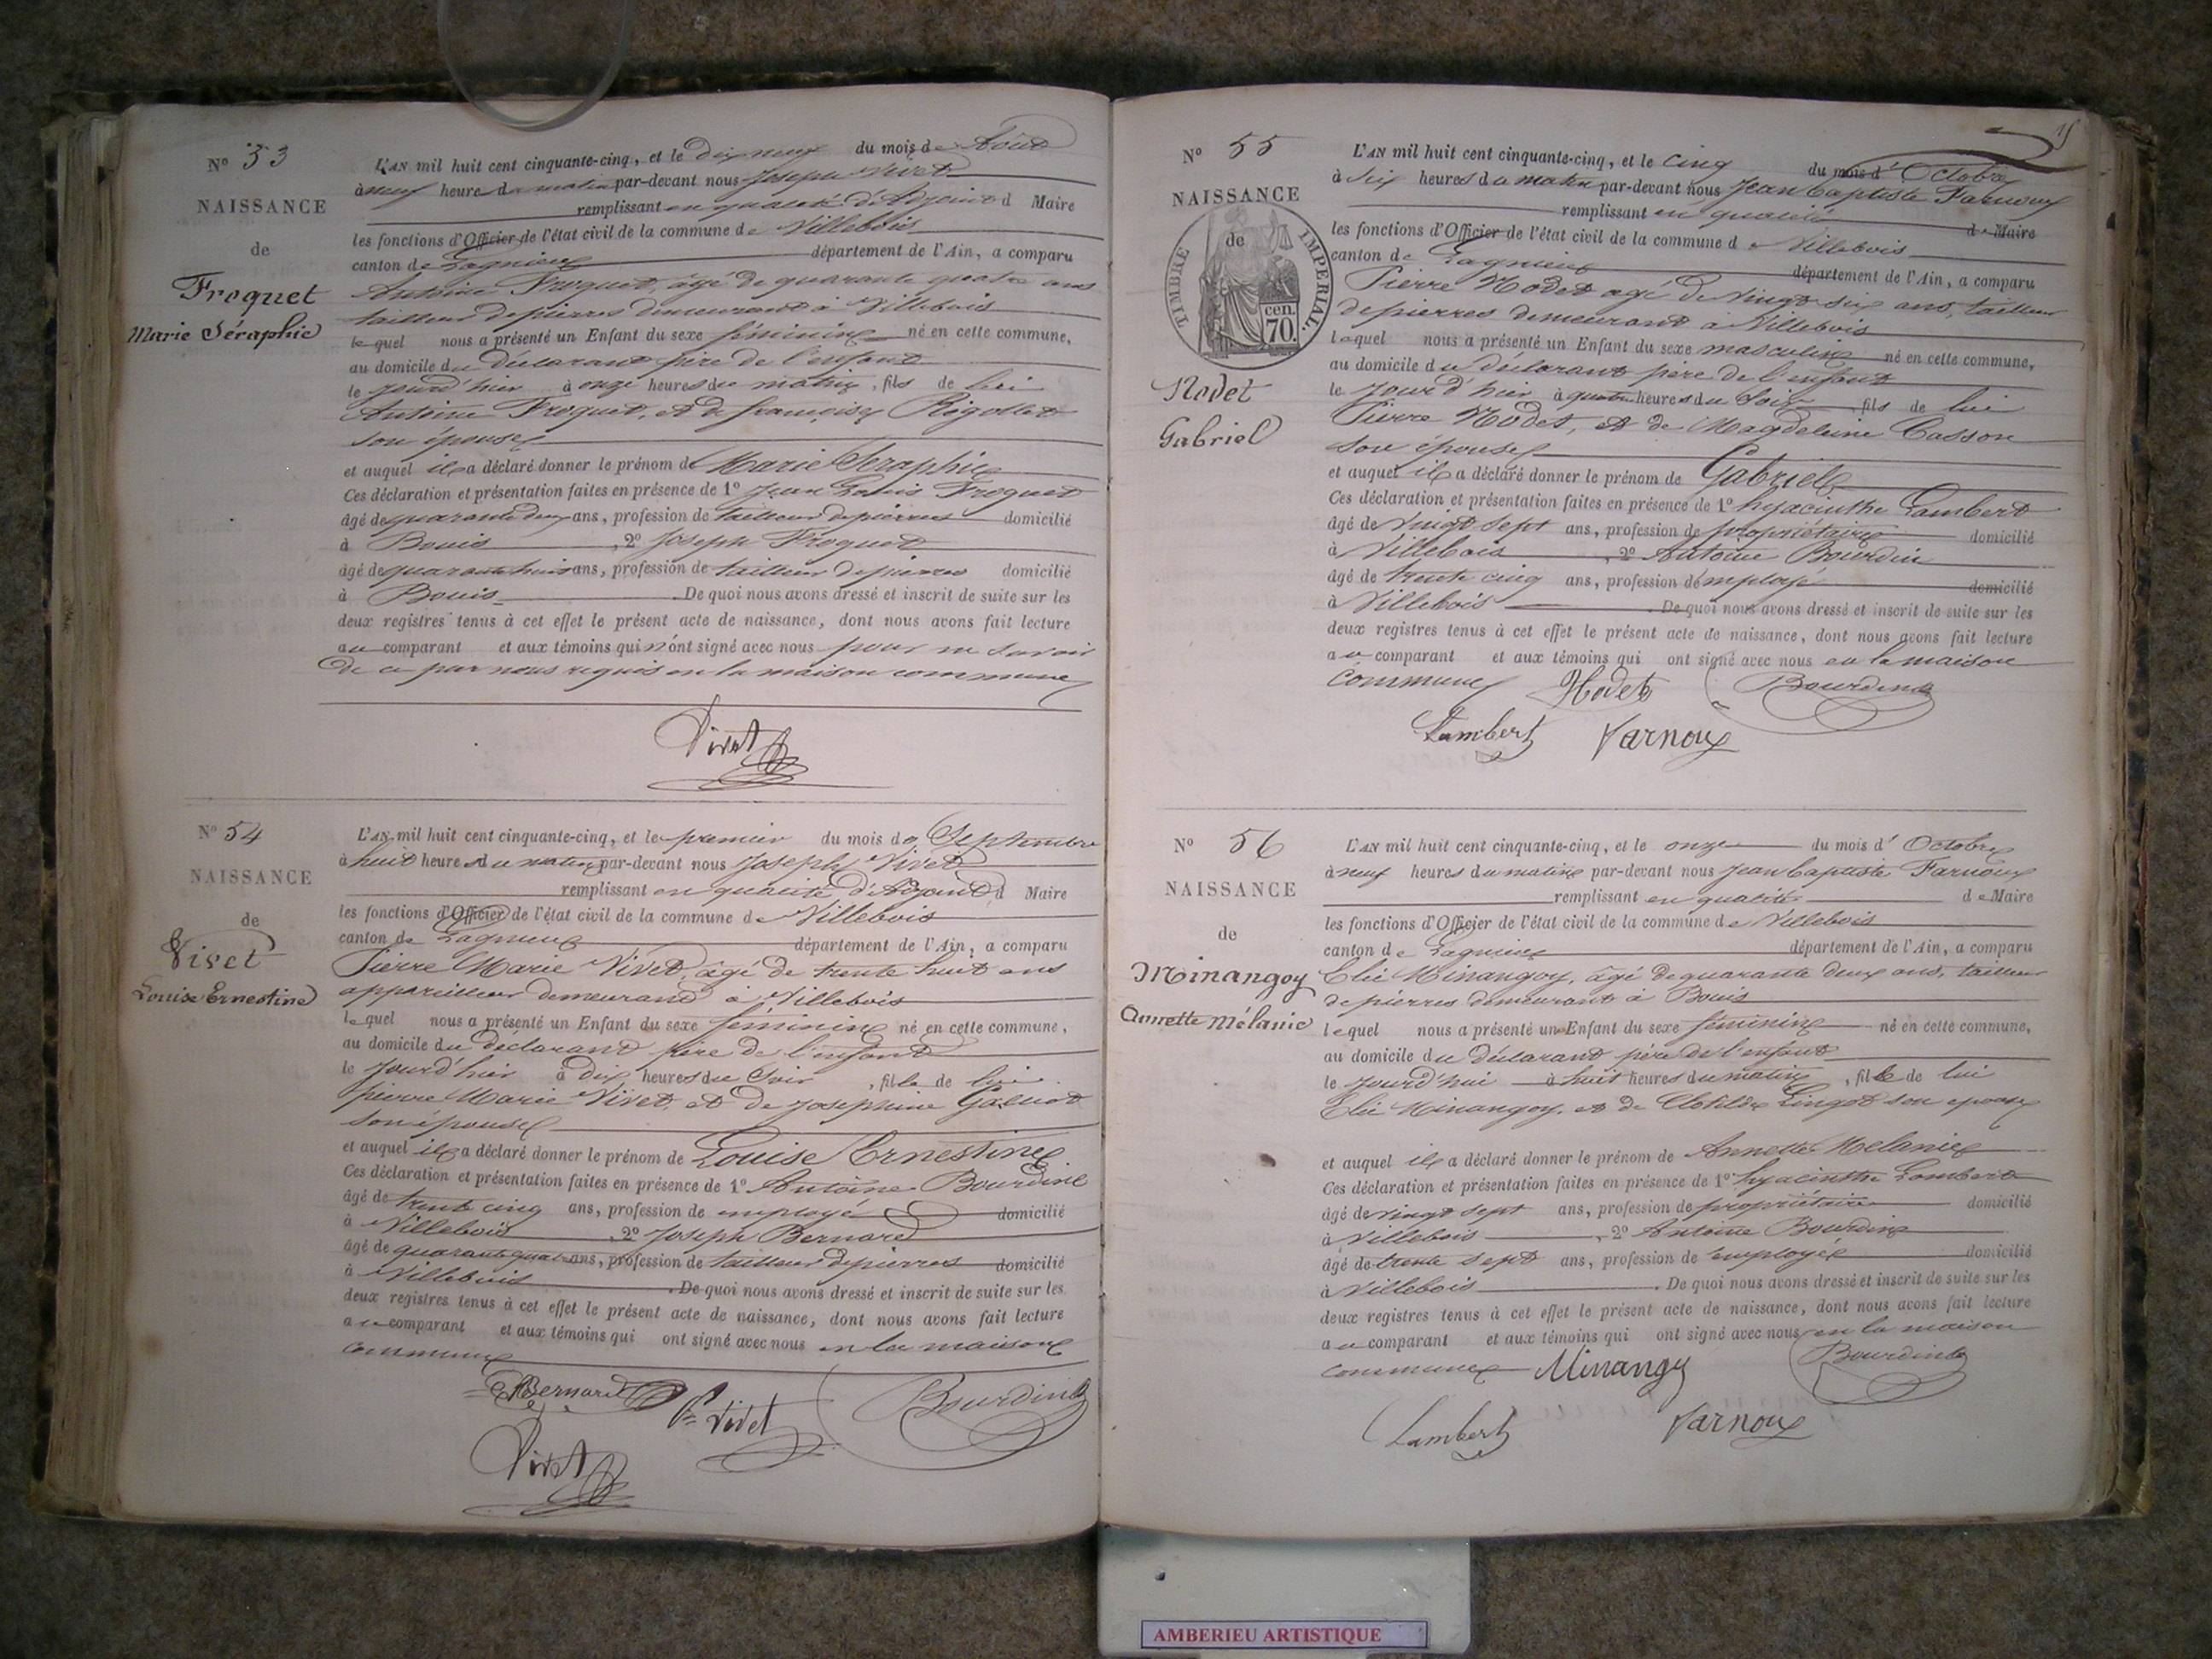 N° 53
NAISSANCE
de
Froquet
Marie Séraphie
L'AN mil huit cent cinquante-cinq, et le dix neuf du mois de Août
à neuf heure du matin par-devant nous Joseph Vivet
remplissant en qualité d'Adjoint d Maire
les fonctions d'Officier de l'état civil de la commune de Villebois
canton de Lagnieux département de l'Ain, a comparu
Antoine Froquet, âgé de quarante quatre ans
tailleur de pierres demeurant à Villebois
lequel nous a présenté un Enfant du sexe féminin né en cette commune,
au domicile du déclarant père de l'enfant
le jourd'hier à onze heures du matin, fils de lui
Antoine Froquet, et de françoise Rigollet
son épouse
et auquel il a déclaré donner le prénom de Marie Seraphie
Ces déclaration et présentation faites en présence de 1° Jean Louis Froquet
âgé de quarante deux ans, profession de tailleur de pierres domicilié
à Bouis, 2° Joseph Froquet
âgé de quarante huit ans, profession de tailleur de pierres domicilié
à Bouis. De quoi nous avons dressé et inscrit de suite sur les
deux registres tenus à cet effet le présent acte de naissance, dont nous avons fait lecture
au comparant et aux témoins qui n'ont signé avec nous pour ne savoir
de ce par nous requis en la maison commune
Vivet
N° 54
NAISSANCE
de
Vivet
Louise Ernestine
L'AN mil huit cent cinquante-cinq, et le premier du mois de Septembre
à huit heures du matin par-devant nous Joseph Vivet
remplissant en qualité d'Adjoint d Maire
les fonctions d'Officier de l'état civil de la commune de Villebois
canton de Lagnieux département de l'Ain, a comparu
Pierre Marie Vivet, âgé de trente huit ans
appareilleur demeurant à Villebois
lequel nous a présenté un Enfant du sexe féminin né en cette commune,
au domicile du déclarant père de l'enfant
le jourd'hier à dix heures du soir, fille de lui
pierre Marie Vivet, et de Josephine
son épouse
et auquel il a déclaré donner le prénom de Louise Ernestine
Ces déclaration et présentation faites en présence de 1° Antoine Bourdin
âgé de trente cinq ans, profession de employé domicilié
à Villebois, 2° Joseph Bernard
âgé de quarante quatre ans, profession de tailleur de pierres domicilié
à Villebois. De quoi nous avons dressé et inscrit de suite sur les
deux registres tenus à cet effet le présent acte de naissance, dont nous avons fait lecture
au comparant et aux témoins qui ont signé avec nous en la maison
commune
Bernard Pre Vivet Bourdin
Vivet
N° 55
NAISSANCE
de
TIMBRE IMPERIAL.
cen.
70.
Hodet
Gabriel
L'AN mil huit cent cinquante-cinq, et le cinq du mois d'Octobre
à six heures du matin par-devant nous Jean Baptiste Farnoux
remplissant en qualité de Maire
les fonctions d'Officier de l'état civil de la commune de Villebois
canton de Lagnieux département de l'Ain, a comparu
Pierre Hodet agé de vingt six ans, tailleur
de pierres demeurant à Villebois
lequel nous a présenté un Enfant du sexe masculin né en cette commune,
au domicile du déclarant père de l'enfant
le jourd'hier à quatre heures du soir, fils de lui
Pierre Hodet, et de Magdeleine Casson
son épouse
et auquel il a déclaré donner le prénom de Gabriel
Ces déclaration et présentation faites en présence de 1° hyacinthe Lambert
âgé de vingt sept ans, profession de propriétaire domicilié
à Villebois, 2° Antoine Bourdin
âgé de trente cinq ans, profession d'employé domicilié
à Villebois. De quoi nous avons dressé et inscrit de suite sur les
deux registres tenus à cet effet le présent acte de naissance, dont nous avons fait lecture
au comparant et aux témoins qui ont signé avec nous en la maison
commune Hodet Bourdin
Lambert Farnoux
N° 56
NAISSANCE
de
Minangoy
Annette Mélanie
L'AN mil huit cent cinquante-cinq, et le onze du mois d'Octobre
à neuf heures du matin par-devant nous Jean Baptiste Farnoux
remplissant en qualité de Maire
les fonctions d'Officier de l'état civil de la commune de Villebois
canton de Lagnieux département de l'Ain, a comparu
Elie Minangoy, âgé de quarante deux ans, tailleur
de pierres demeurant à Bouis
lequel nous a présenté un Enfant du sexe féminin né en cette commune,
au domicile du déclarant père de l'enfant
le jourd'hui à huit heures du matin, fille de lui
Elie Minangoy, et de Clotilde Lingot son epouse
et auquel il a déclaré donner le prénom de Annette Melanie
Ces déclaration et présentation faites en présence de 1° hyacinthe Lambert
âgé de vingt sept ans, profession de propriétaire domicilié
à Villebois, 2° Antoine Bourdin
âgé de trente sept ans, profession de employé domicilié
à Villebois. De quoi nous avons dressé et inscrit de suite sur les
deux registres tenus à cet effet le présent acte de naissance, dont nous avons fait lecture
au comparant et aux témoins qui ont signé avec nous en la maison
commune Minangoy Bourdin
Lambert Farnoux
AMBERIEU ARTISTIQUE